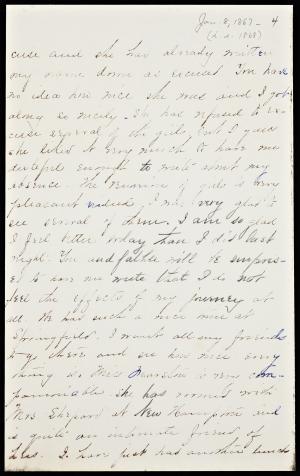 Jan. 8, 1867 - 4
(i.e. 1868)
cuse and she has already written
my name down as excused You have
no idea how nice she was and I got
along so nicely. She has refused to ex-
cuse several of the girls, but I guess
she likes it very much to have me
careful enough to write about my
absence. The Reunion of girls is very
pleasant indeed, I was very glad to
see several of them. I am so glad
I feel better today than I did last
night. You and father will be surpris-
ed to have me write that I do not
feel the effects of my journey at
all. We had such a nice time at
Springfield. I want all my friends
to go there and see how nice every
thing is. Miss is very com-
panionable she has roomed with
Mrs. Shepard at New Hampshire and
is quite an intimate friend of
hers. I have just had another lunch